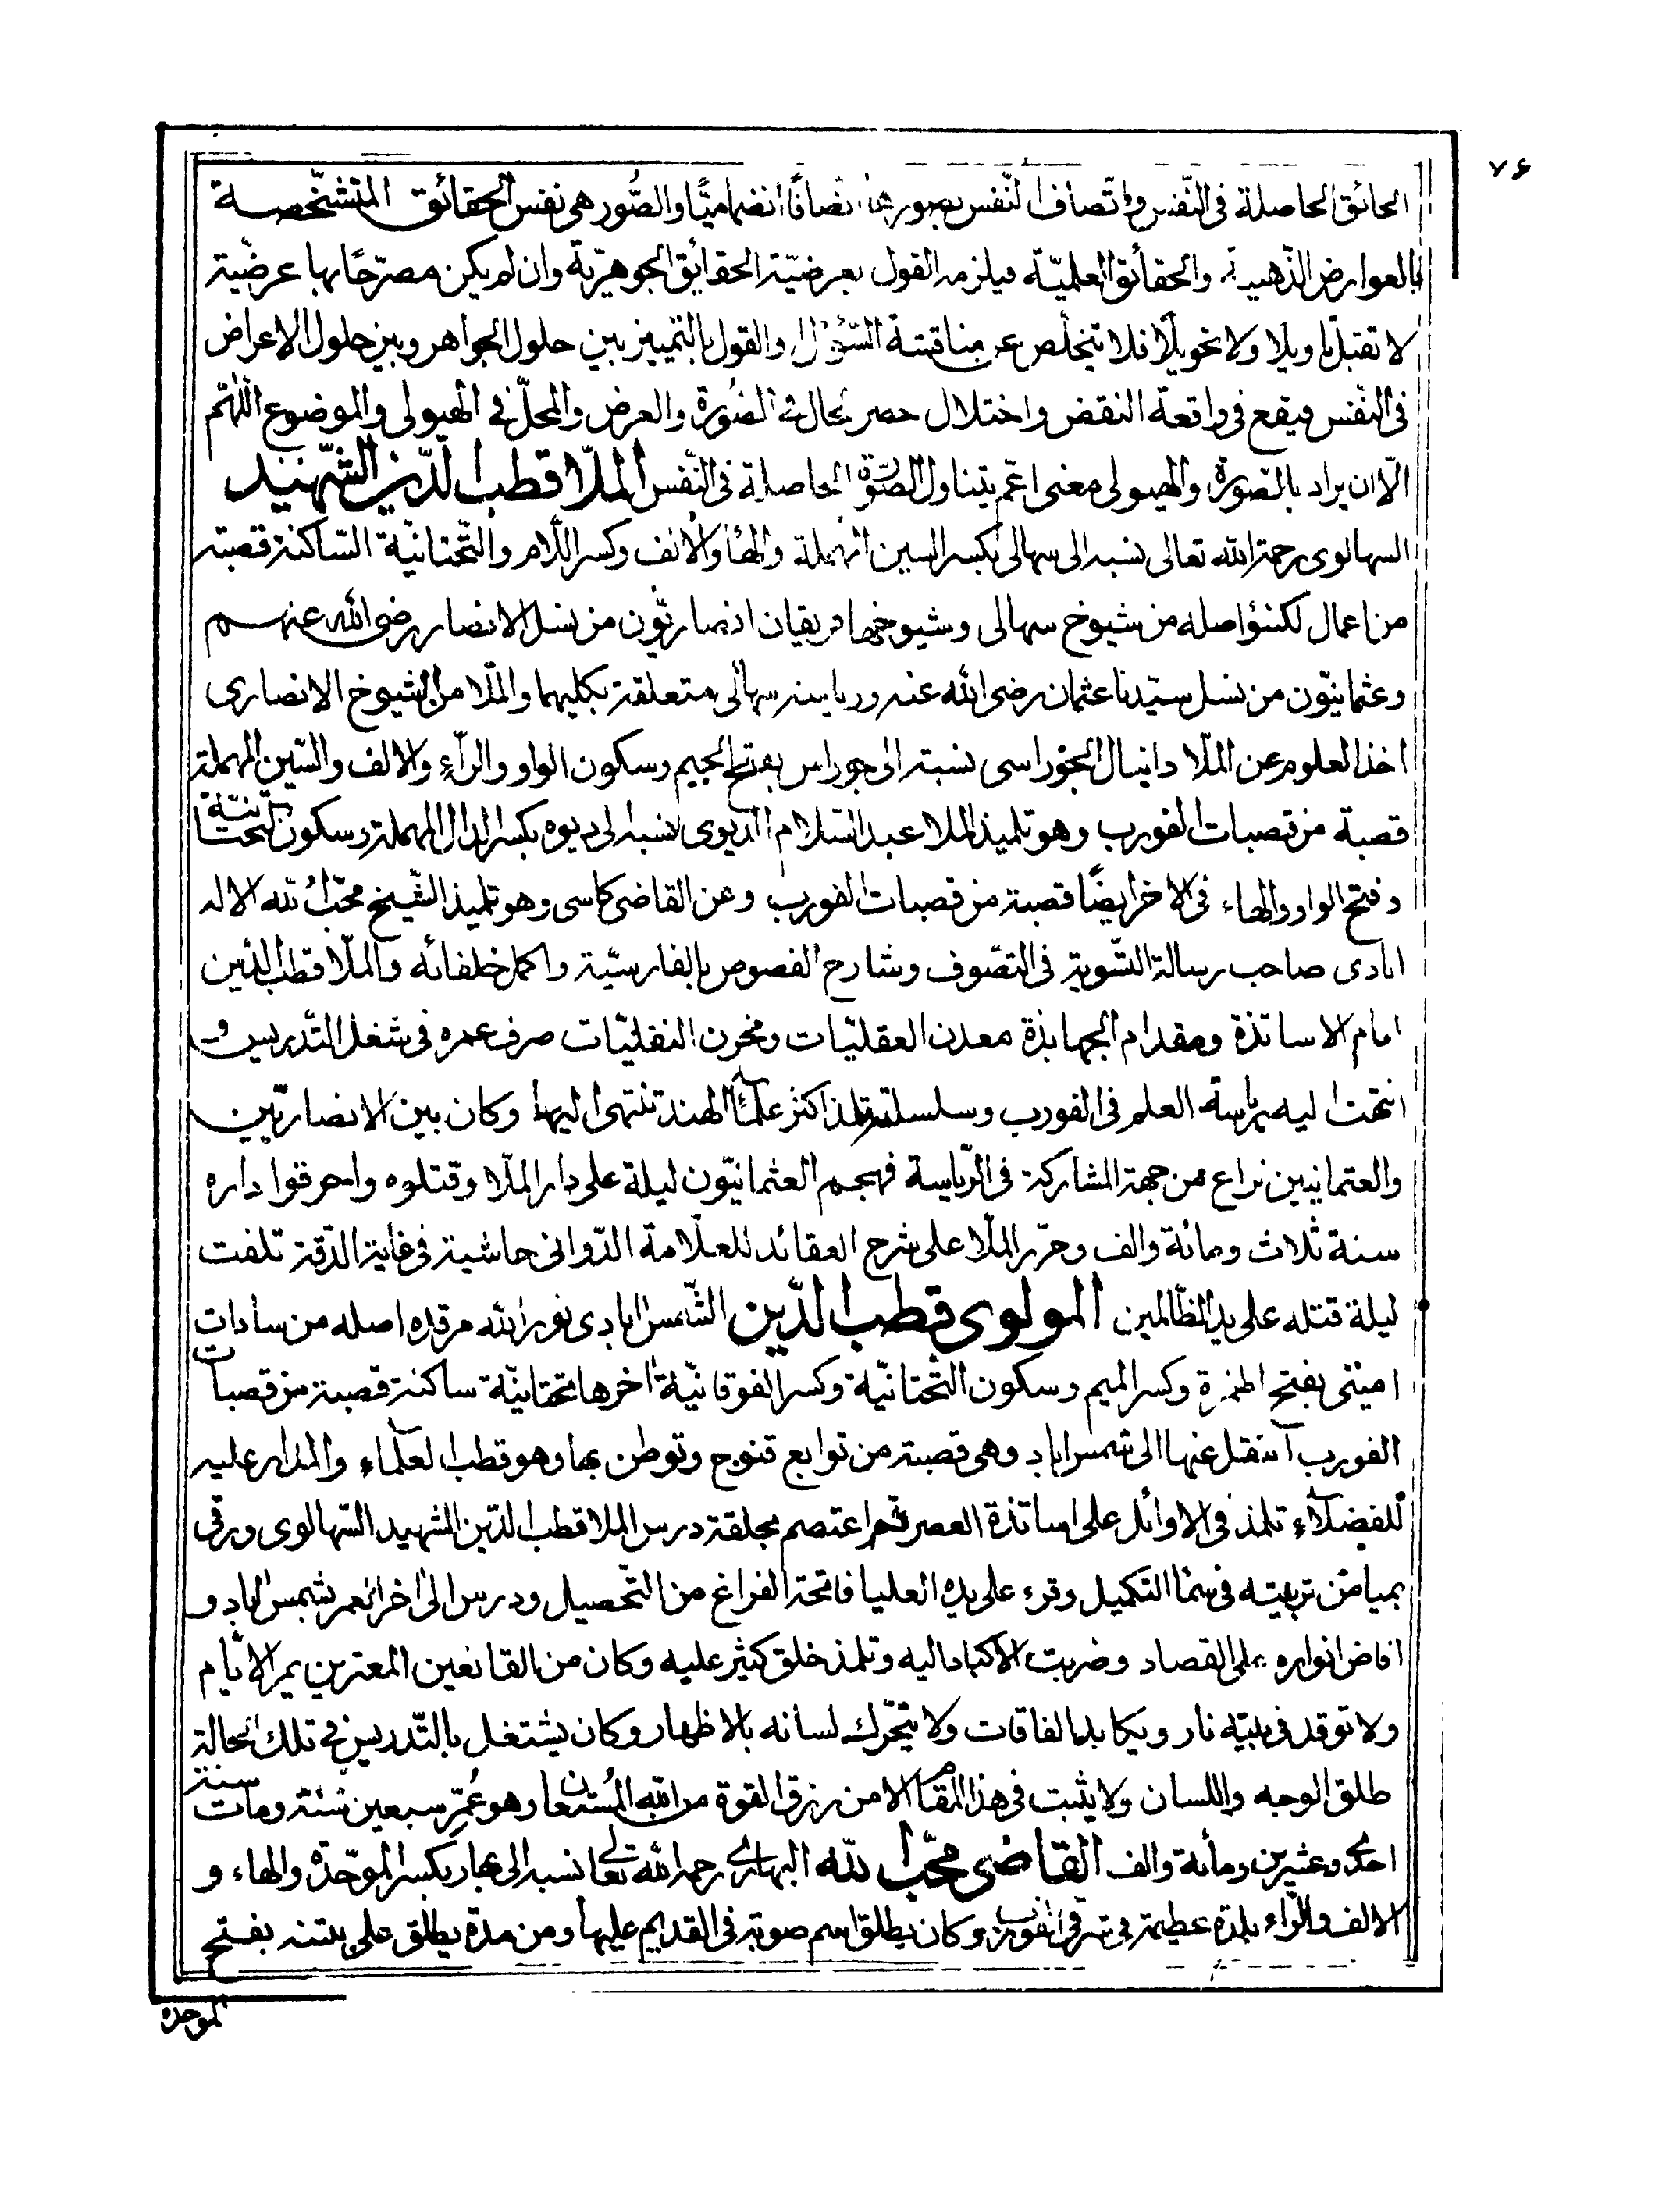 ٧٦
الحائق الحاصلة فى النّفس واتّصاف النّفس بصورها اتصافًا انضماميًّا والصُّور هى نفس الحقائق المتشخّصة
بالعوارض الذّهنية والحقائق العلميّة فيلزمه القول بعرضيّة الحقايق الجوهريّة وان لم يكن مصرّحًا بها عرضيّة
لا تقبل تاويلا ولا تحويلًا فلا يتخلص عن مناقشة السّؤال والقول بالتمييز بين حلول الجواهر وبين حلول الاعراض
فى النّفس فيقع فى واقعة النقض واختلال حصر الحال فى الصُّورة والعرض والمحلّ فى الهيولى والموضوع اللّٰهمّ
الّا ان يراد بالصّورة والهيولى معنى اعّم يتناول الصّورة الحاصلة فى النّفس الملّا قطب الدّين الشّهيد
السهالوى رحمة الله تعالى نسبه الى سهالى بكسر السين المهملة والهاء والالف وكسر اللّام والتّحتانيّة السّاكنة قصبته
من اعمال لكنئو اصله من شيوخ سهالى وشيوخها فريقان انصاريّون من نسل الانصار رضى الله عنهم
وعثمانيّون من نسل سيّدنا عثمان رضى الله عنه ورياسته سهالى متعلقة بكليهما والملّا من الشيوخ الانصارى
اخذ العلوم عن الملّا دانيال الجوراسى نسبته الى جوراس بفتح الجيم وسكون الواو والرّاء والالف والسّين المهملة
قصبة من قصبات الفورب وهو تلميذ الملا عبد السّلام الديوى نسبه الى ديوه بكسر الدال المهملة وسكون التحتانيّة
وفتح الواو والهاء فى الاخر ايضًا قصبة من قصبات الفورب وعن القاضى كاسى وهو تلميذ الشّيخ محّب اُلله الاله
ابادى صاحب رسالة التّسوية فى التصّوف وشارح الفصوص بالفارسيّة واكمل خلفائه والملّا قطب الدّين
امام الاساتذة ومقدام الجهابذة معدن العقليّات ومخزن النقليّات صرف عمره فى شغل التّدريس و
انتهت اليه رياسة العلم فى الفورب وسلسلة تلمذ اكثر علماء الهند تنتهى اليها وكان بين الانصاريّين
والعثمانيين نزاع من جهة المشاركة فى الرّياسة فهجم العثمانيّون ليلة على دار الملّا وقتلوه واحرقوا داره
سنة ثلاث ومائة والف وحرّر الملّا على شرح العقائد للعلّامة الدّوانى حاشية فى غاية الدّقة تلفت
ليلة قتله على يد الظّالمين المولوى قطب الدّين الشّمس ابادى نور الله مرقده اصله من سادات
اميتى بفتح الهمزة وكسر الميم وسكون التّحتانيّة وكسر الفوقانيّة اخرها تحتانيّة ساكنة قصبة من قصبات
الفورب انتقل عنها الى شمس اباد وهى قصبة من توابع قنوج وتوطن بها وهو قطب العلماء والمدار عليه
للفضلاء تلمذ فى الاوائل على اساتذة العصر ثم اعتصم بحلقة درس الملا قطب الدّين الشهيد السّهالوى ورقى
بميامن تربيته فى سماء التكميل وقرء على يده العليا فاتحة الفراغ من التّحصيل ودرس الى اخر العمر بشمس اباد و
افاض انواره على القصاد وضربت الاكباد اليه وتلمذ خلق كثير عليه وكان من القانعين المعترين يمر الايّام
ولا توقد فى بيته نار ويكابد الفاقات ولا يتحرّك لسانه بالاظهار وكان يشتغل بالتّدريس فى تلك الحالة
طلق الوجه واللسان ولا يثبت فى هذا المقام الا من رزق القوة من الله المُستعان وهو عُمِّر سبعين سنة ومات سنة
احدى وعشرين ومأئة والف القاضى محّب الله البهارى رحمه الله تعالى نسبه الى بهار بكسر الموحّدة والهاء و
الالف والرّاء بلدة عظيمة فى شرقى الفورب وكان يطلق اسم صوبة فى القديم عليها ومن مدة يطلق على پتنه بفتح
الموحدة